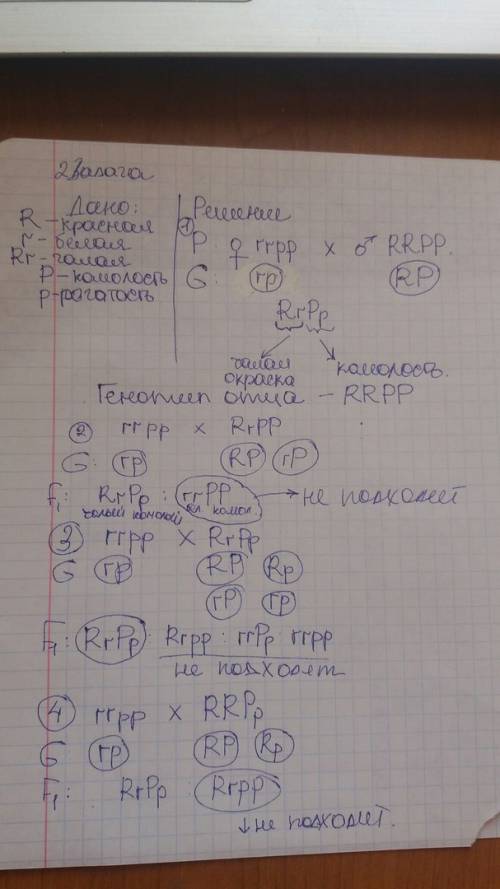 2 Задача
Дано:
R - красная
r - белая
Rr - чалая
P - комолость
p - рогатость
Решение
① P: ♀ rrpp x ♂ RRPP.
G: rp RP
RrPp
чалая окраска комолость.
Генотип отца - RRPP
② rrpp x RrPP
G: rp RP rP
F₁: RrPp : rrPP → не подходит
чалый комолый бел. комол.
③ rrpp x RrPp
G rp RP Rp
rP rp
F₁: RrPp : Rrpp : rrPp : rrpp
не подходят
④ rrpp x RRPp
G rp RP Rp
F₁: RrPp : Rrpp
↓ не подходит.